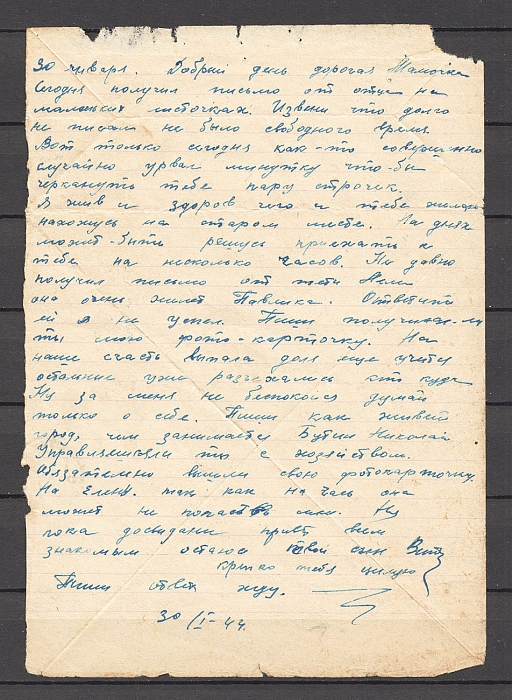 30 января. Добрый день дорогая Мамочка
Сегодня получил письмо от отца на
маленьких листочках. Извени что долго
не писал не было свободного время.
Вот только сегодня как-то совершенно
случайно урвал минутку что-бы
черкнуть тебе пару строчек.
Я жив и здоров чего и тебе желаю
нахожусь на старом месте. На днях
может-быть решусь приехать к
тебе на несколько часов. Не давно
получил письмо от тети
она очень жалеет Павлика. Ответить
ей я не успел. Пиши получила-ли
ты мою фото-карточку. На
наше счасть выпала доля еще учится
остальние уже разъежались кто куда
Ну за меня не беспокойся думай
только о себе. Пиши как живет
город, чем занимается Бутин Николай
Управляешься ты с хозяйством.
Обязательно вышли свою фотокарточку.
На так как на часть она
может не попасть Ну
пока досвидания привет всем
знакомым остаюс твой сын Витя
крепко тебя целую
Пиши ответ жду.
30/I-44.